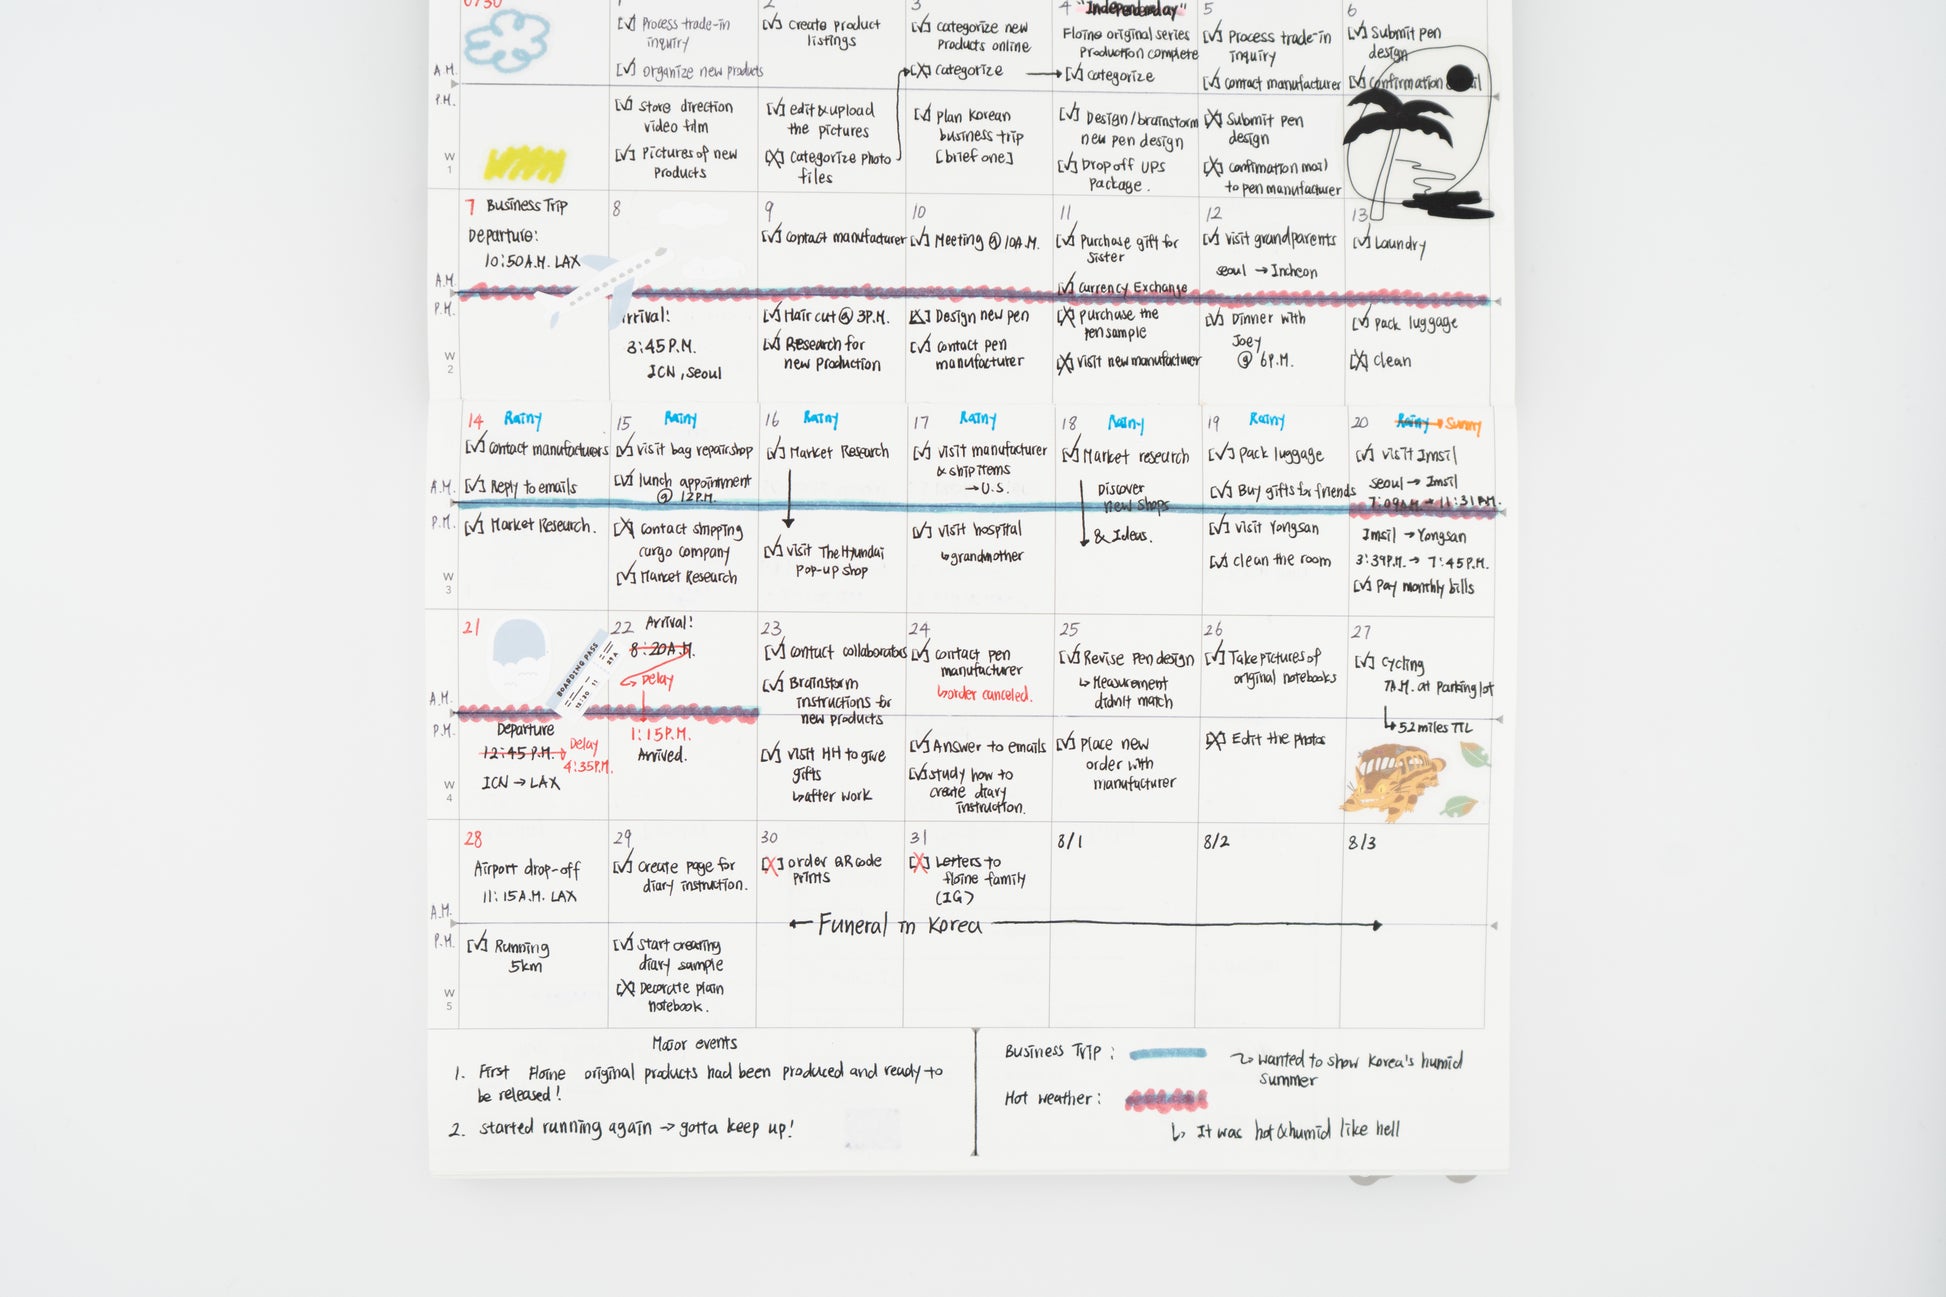 0730
1
[✓] Process trade-in
inquiry
[✓] Organize new products
2
[✓] Create product
listings
3
[✓] categorize new
products online
[X] categorize
4 "Independenday"
Floine original series
Production complete
[✓] categorize
5
[✓] Process trade-in
inquiry
[✓] contact manufacturer
6
[✓] Submit pen
design
[✓] Confirmation
A.M.
P.M.
W
1
[✓] Store direction
video film
[✓] Pictures of new
Products
[✓] edit & upload
the pictures
[X] Categorize photo
files
[✓] Plan Korean
business trip
[brief one]
[✓] Design/brainstorm
new pen design
[✓] Drop off UPS
Package.
[X] Submit pen
design
[X] confirmation mail
to pen manufacturer
7 Business Trip
Departure:
10:50 A.M. LAX
8
9
[✓] Contact manufacturer
10
[✓] Meeting @ 10A.M.
11
[✓] Purchase gift for
Sister
[✓] Currency Exchange
12
[✓] Visit grandparents
Seoul → Incheon
13
[✓] Laundry
A.M.
P.M.
W
2
Arrival!
3:45 P.M.
ICN, Seoul
[✓] Hair cut @ 3P.M.
[✓] Research for
new Production
[X] Design new pen
[✓] Contact pen
manufacturer
[X] Purchase the
pen sample
[X] Visit new manufacturer
[✓] Dinner with
Joey
@ 6P.M.
[✓] Pack luggage
[X] Clean
14 Rainy
[✓] Contact manufacturers
[✓] Reply to emails
15 Rainy
[✓] Visit bag repairshop
[✓] lunch appointment
@ 12P.M.
16 Rainy
[✓] Market Research
17 Rainy
[✓] Visit manufacturer
& ship items
→ U.S.
18 Rainy
[✓] Market research
Discover
new shops
& Ideas.
19 Rainy
[✓] Pack luggage
[✓] Buy gifts for friends
20 Rainy → Sunny
[✓] Visit Imsil
Seoul → Imsil
7:09A.M. → 11:31A.M.
A.M.
P.M.
W
3
[✓] Market Research.
[X] Contact shipping
cargo company
[✓] Market Research
[✓] Visit The Hyundai
Pop-up shop
[✓] Visit hospital
↳ grandmother
[✓] Visit Yongsan
[✓] Clean the room
Imsil → Yongsan
3:39P.M. → 7:45P.M.
[✓] Pay monthly bills
21
BOARDING PASS
22 Arrival!
8:20A.M.
↳ Delay
23
[✓] Contact collaborators
[✓] Brainstorm
instructions for
new products
24
[✓] Contact pen
manufacturer
↳ order canceled.
25
[✓] Revise Pen design
↳ Measurement
didn't match
26
[✓] Take pictures of
original notebooks
27
[✓] Cycling
7A.M. at Parking lot
↳ 52 miles TTL
A.M.
P.M.
W
4
Departure
12:45 P.M. → Delay
4:35P.M.
ICN → LAX
1:15 P.M.
Arrived.
[✓] Visit HH to give
gifts
↳ after work
[✓] Answer to emails
[✓] study how to
create diary
instruction.
[✓] Place new
order with
manufacturer
[X] Edit the photos
28
Airport drop-off
11:15 A.M. LAX
29
[✓] Create page for
diary instruction.
30
[X] order QR code
Prints
31
[X] Letters to
floine family
(IG)
8/1
8/2
8/3
A.M.
P.M.
W
5
← Funeral in Korea →
[✓] Running
5km
[✓] Start creating
diary sample
[X] Decorate plain
notebook.
Major events
1. First Floine original products had been produced and ready to
be released!
2. started running again → gotta keep up!
Business Trip :
→ wanted to show Korea's humid
summer
Hot weather :
↳ It was hot & humid like hell